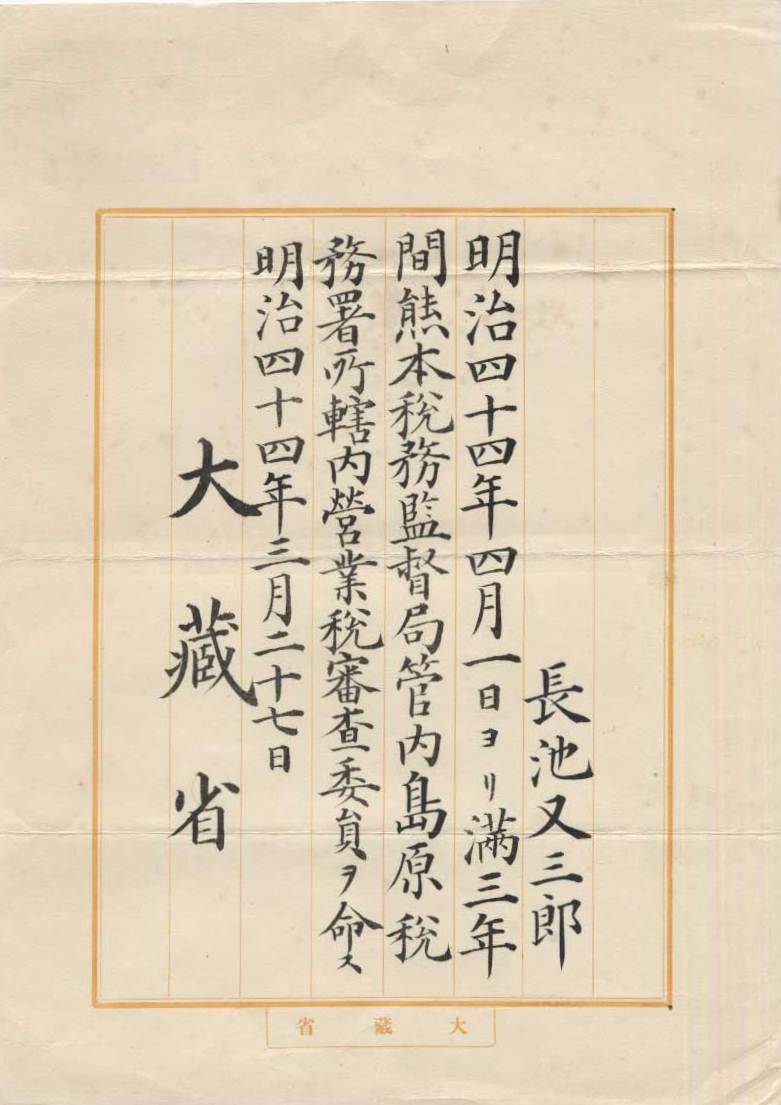 長池又三郎
明治四十四年四月一日ヨリ満三年
間熊本税務監督局管内島原税
務署所轄内營業税審査委員ヲ命ス
明治四十四年三月二十七日
大藏省
大藏省